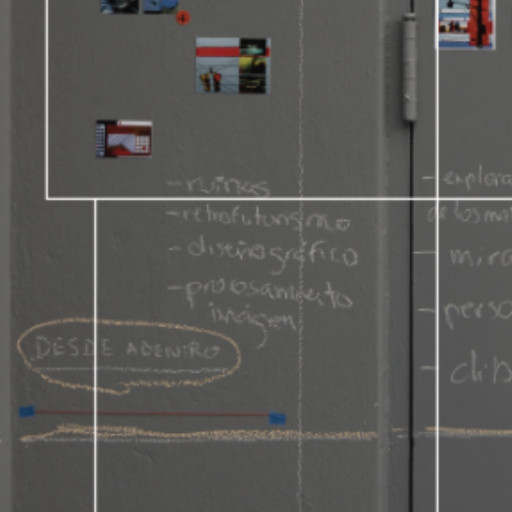 - ruinas
- retrofuturismo
- diseño gráfico
- procesamiento
imagen
DESDE ADENTRO
- explora
de los ma
- mira
- perso
- dib